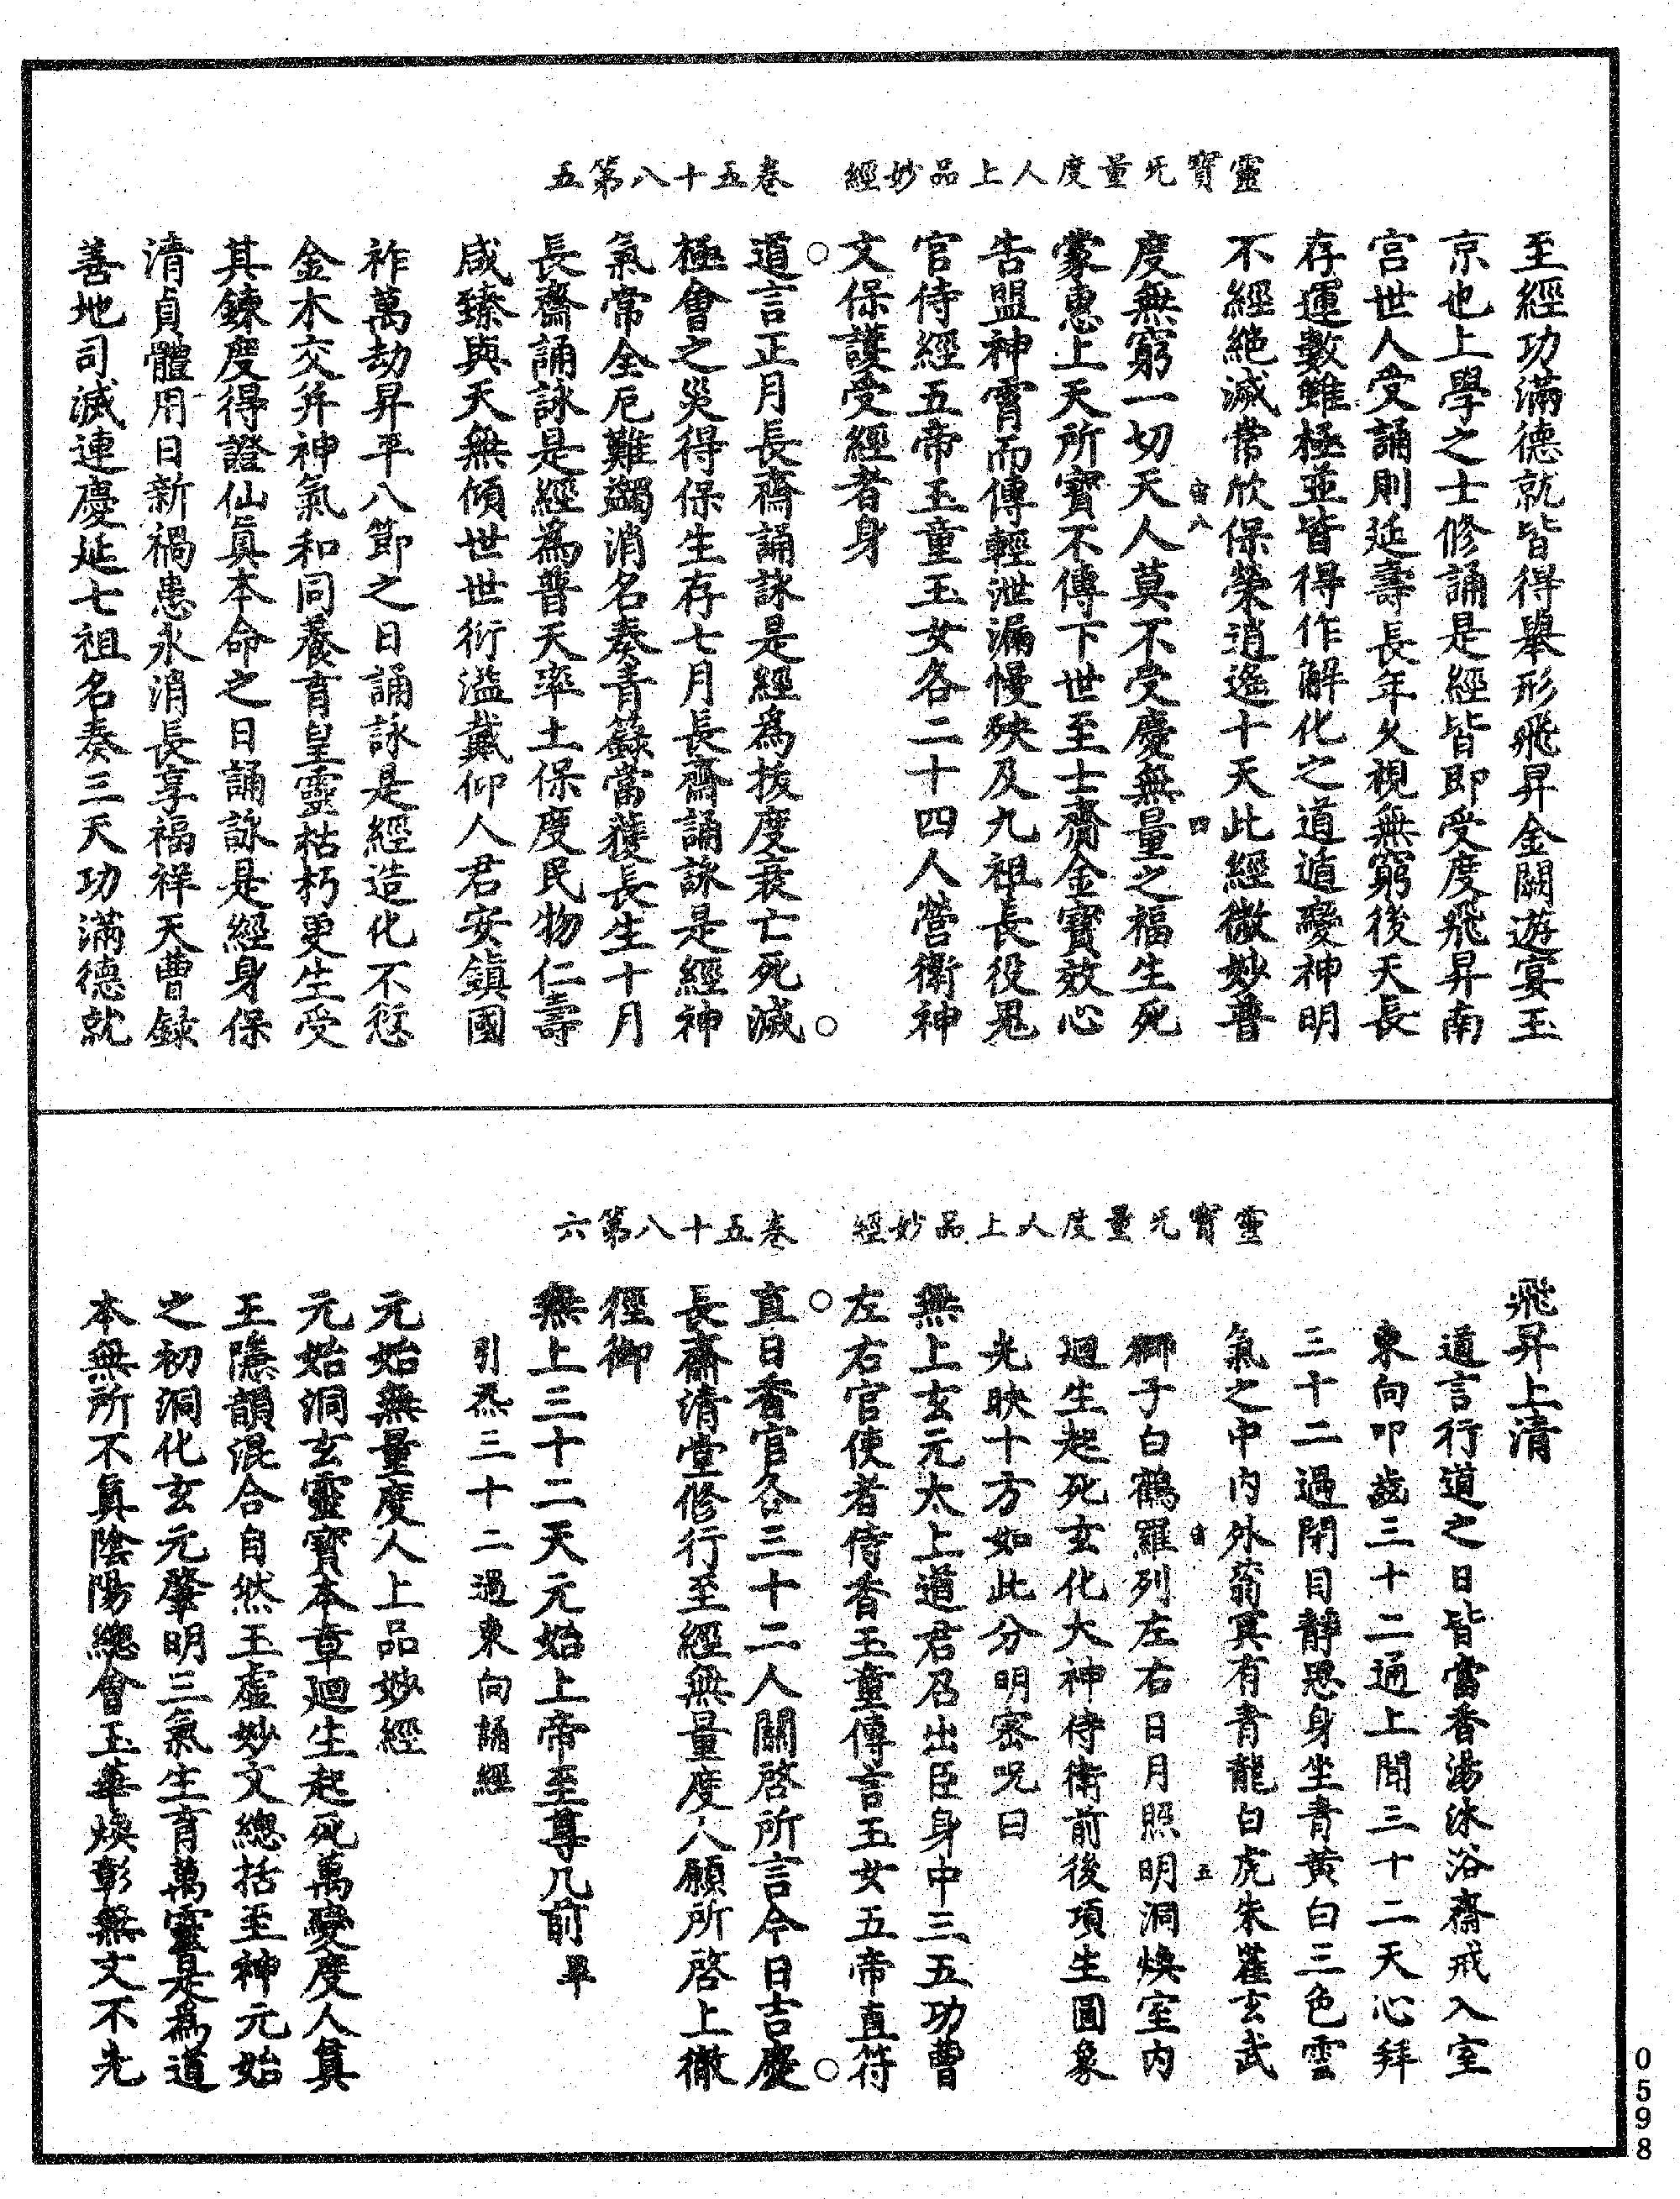 靈寶无量度人上品妙經　卷五十八第五
至經功滿德就皆得舉形飛昇金闕遊宴玉
京也上學之士修誦是經皆即受度飛昇南
宮世人受誦則延壽長年久視無窮後天長
存運數雖極並皆得作解化之道遁變神明
不經絕滅常欣保榮逍遙十天此經微妙普
度無窮一切天人莫不受慶無量之福生死
蒙惠上天所寶不傳下世至士齎金寶效心
告盟神霄而傳輕泄漏慢殃及九祖長役鬼
官侍經五帝玉童玉女各二十四人營衛神
文保護受經者身
道言正月長齋誦詠是經為拔度衰亡死滅
極會之災得保生存七月長齋誦詠是經神
氣常全厄難蠲消名奏青籙當獲長生十月
長齋誦詠是經為普天率土保度民物仁壽
咸臻與天無傾世世衍溢戴仰人君安鎮國
祚萬劫昇平八節之日誦詠是經造化不愆
金木交并神氣和同養育皇靈枯朽更生受
其鍊度得證仙真本命之日誦詠是經身保
清貞體用日新禍患永消長享福祥天曹録
善地司滅連慶延七祖名奏三天功滿德就
靈寶无量度人上品妙經　卷五十八第六
飛昇上清
道言行道之日皆當香湯沐浴齋戒入室
東向叩齒三十二通上聞三十二天心拜
三十二過閉目靜思身坐青黃白三色雲
氣之中內外蓊冥有青龍白虎朱雀玄武
獅子白鶴羅列左右日月照明洞煥室內
迴生起死玄化大神侍衛前後項生圓象
光映十方如此分明密呪曰
無上玄元太上道君召出臣身中三五功曹
左右官使者侍香玉童傳言玉女五帝直符
直日香官各三十二人關啓所言今日吉慶
長齋清堂修行至經無量度人願所啓上徹
徑御
無上三十二天元始上帝至尊几前畢
引炁三十二過東向誦經
元始無量度人上品妙經
元始洞玄靈寶本章迴生起死萬變度人真
王隱韻混合自然玉虛妙文總括至神元始
之初洞化玄元肇明三氣生育萬靈是為道
本無所不真陰陽總會玉華煥彰無文不光
0598